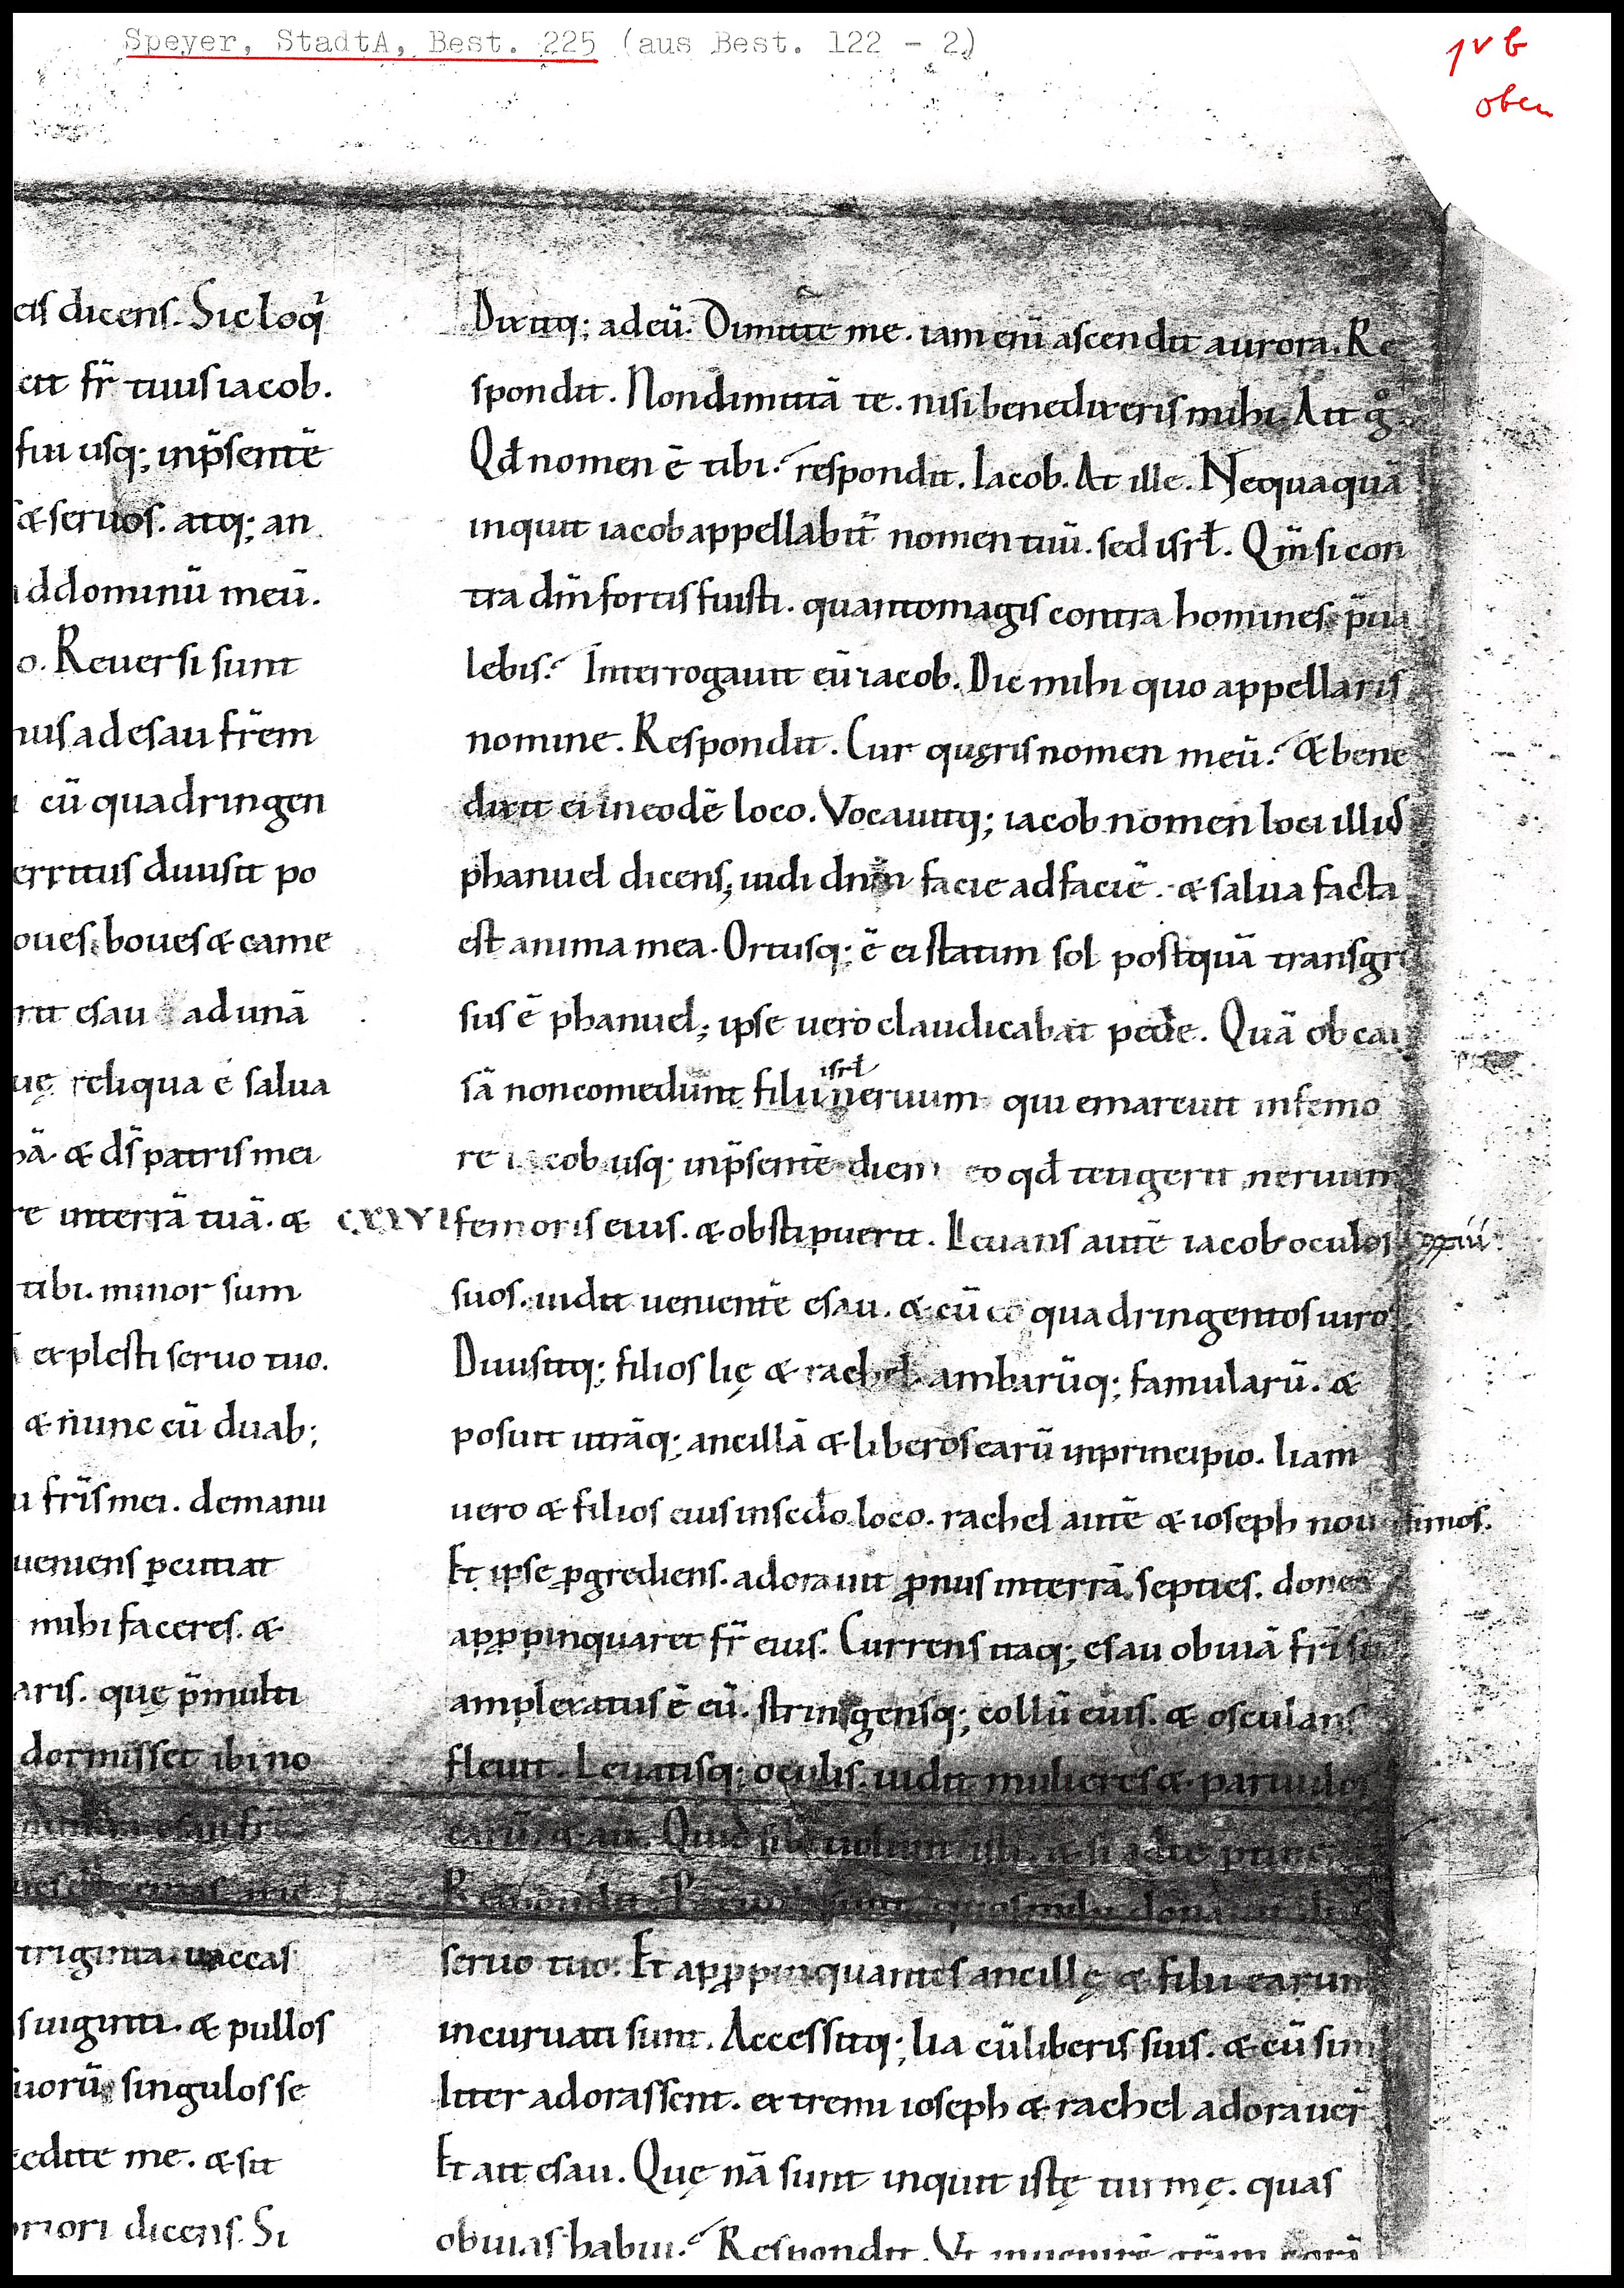 Speyer, StadtA, Best. 225 (aus Best. 122 - 2)
1vb
oben
eis dicens. Sic loq̄r
cit fr̄ tuus iacob.
fui usq; inp̄sentē
& seruos. atq; an
ad dominū meū.
o. Reuersi sunt
mus ad esau fr̄em
cū quadringen
erritus diuisit po
oues. boues & came
rit esau ad unā
uę reliqua ē salua
& ds̄ patris mei
re in terrā tuā. &
tibi. minor sum
explesti seruo tuo.
& nunc cū duab;
fr̄is mei. de manu
ueniens ꝑcutiat
mihi faceres. &
aris. quę p̄ multi
dormisset ibi no
triginta. uaccas
s uiginti. & pullos
uorū singulos se
cedite me. & sit
priori dicens. Si
Dixitq; ad eū. Dimitte me. iam enī ascendit aurora. Re
spondit. Non dimittā te. nisi benedixeris mihi. Ait gͦ
Qđ nomen ē tibi? respondit. Iacob. At ille. Nequaquā
inquit iacob appellabit̄ nomen tuū. sed isrł. Qm̄ si con
tra dm̄ fortis fuisti. quanto magis contra homines p̄ua
lebis? Interrogauit eū iacob. Dic mihi quo appellaris
nomine. Respondit. Cur quęris nomen meū? & bene
dixit ei in eodē loco. Vocauitq; iacob nomen loci illius
phanuel dicens; uidi dnm facie ad faciē. & salua facta
est anima mea. Ortusq; ē ei statim sol postquā transgre
sus ē phanuel; ipse uero claudicabat pede. Quā ob cau
isrł
sā non comedunt filii neruum qui emarcuit in femo
re iacob usq; inp̄sentē diem eo qđ tetigerit neruum
CXXVI femoris eius. & obstipuerit. Leuans autē iacob oculos
suos. uidit uenientē esau. & cū eo quadringentos uiros
Diuisitq; filios lię & rachel. ambarūq; famularū. &
posuit utrāq; ancillā & liberos earū in principio. liam
uero & filios eius in secđo loco. rachel autē & ioseph nouissimos.
Et ipse ꝓgrediens. adorauit ꝓnus in terrā septies. donec
apꝓpinquaret fr̄ eius. Currens itaq; esau obuiā fr̄i suo
amplexatus ē eū. stringensq; collū eius. & osculans
fleuit. Leuatisq; oculis. uidit mulieres & paruulos
seruo tuo. Et apꝓpinquantes ancillę & filii earum
incuruati sunt. Accessitq; lia cū liberis suis. & cū simi
liter adorassent. extremi ioseph & rachel adorauer̄
Et ait esau. Quę nā sunt inquit istę turmę. quas
obuias habui? Respondit. Vt